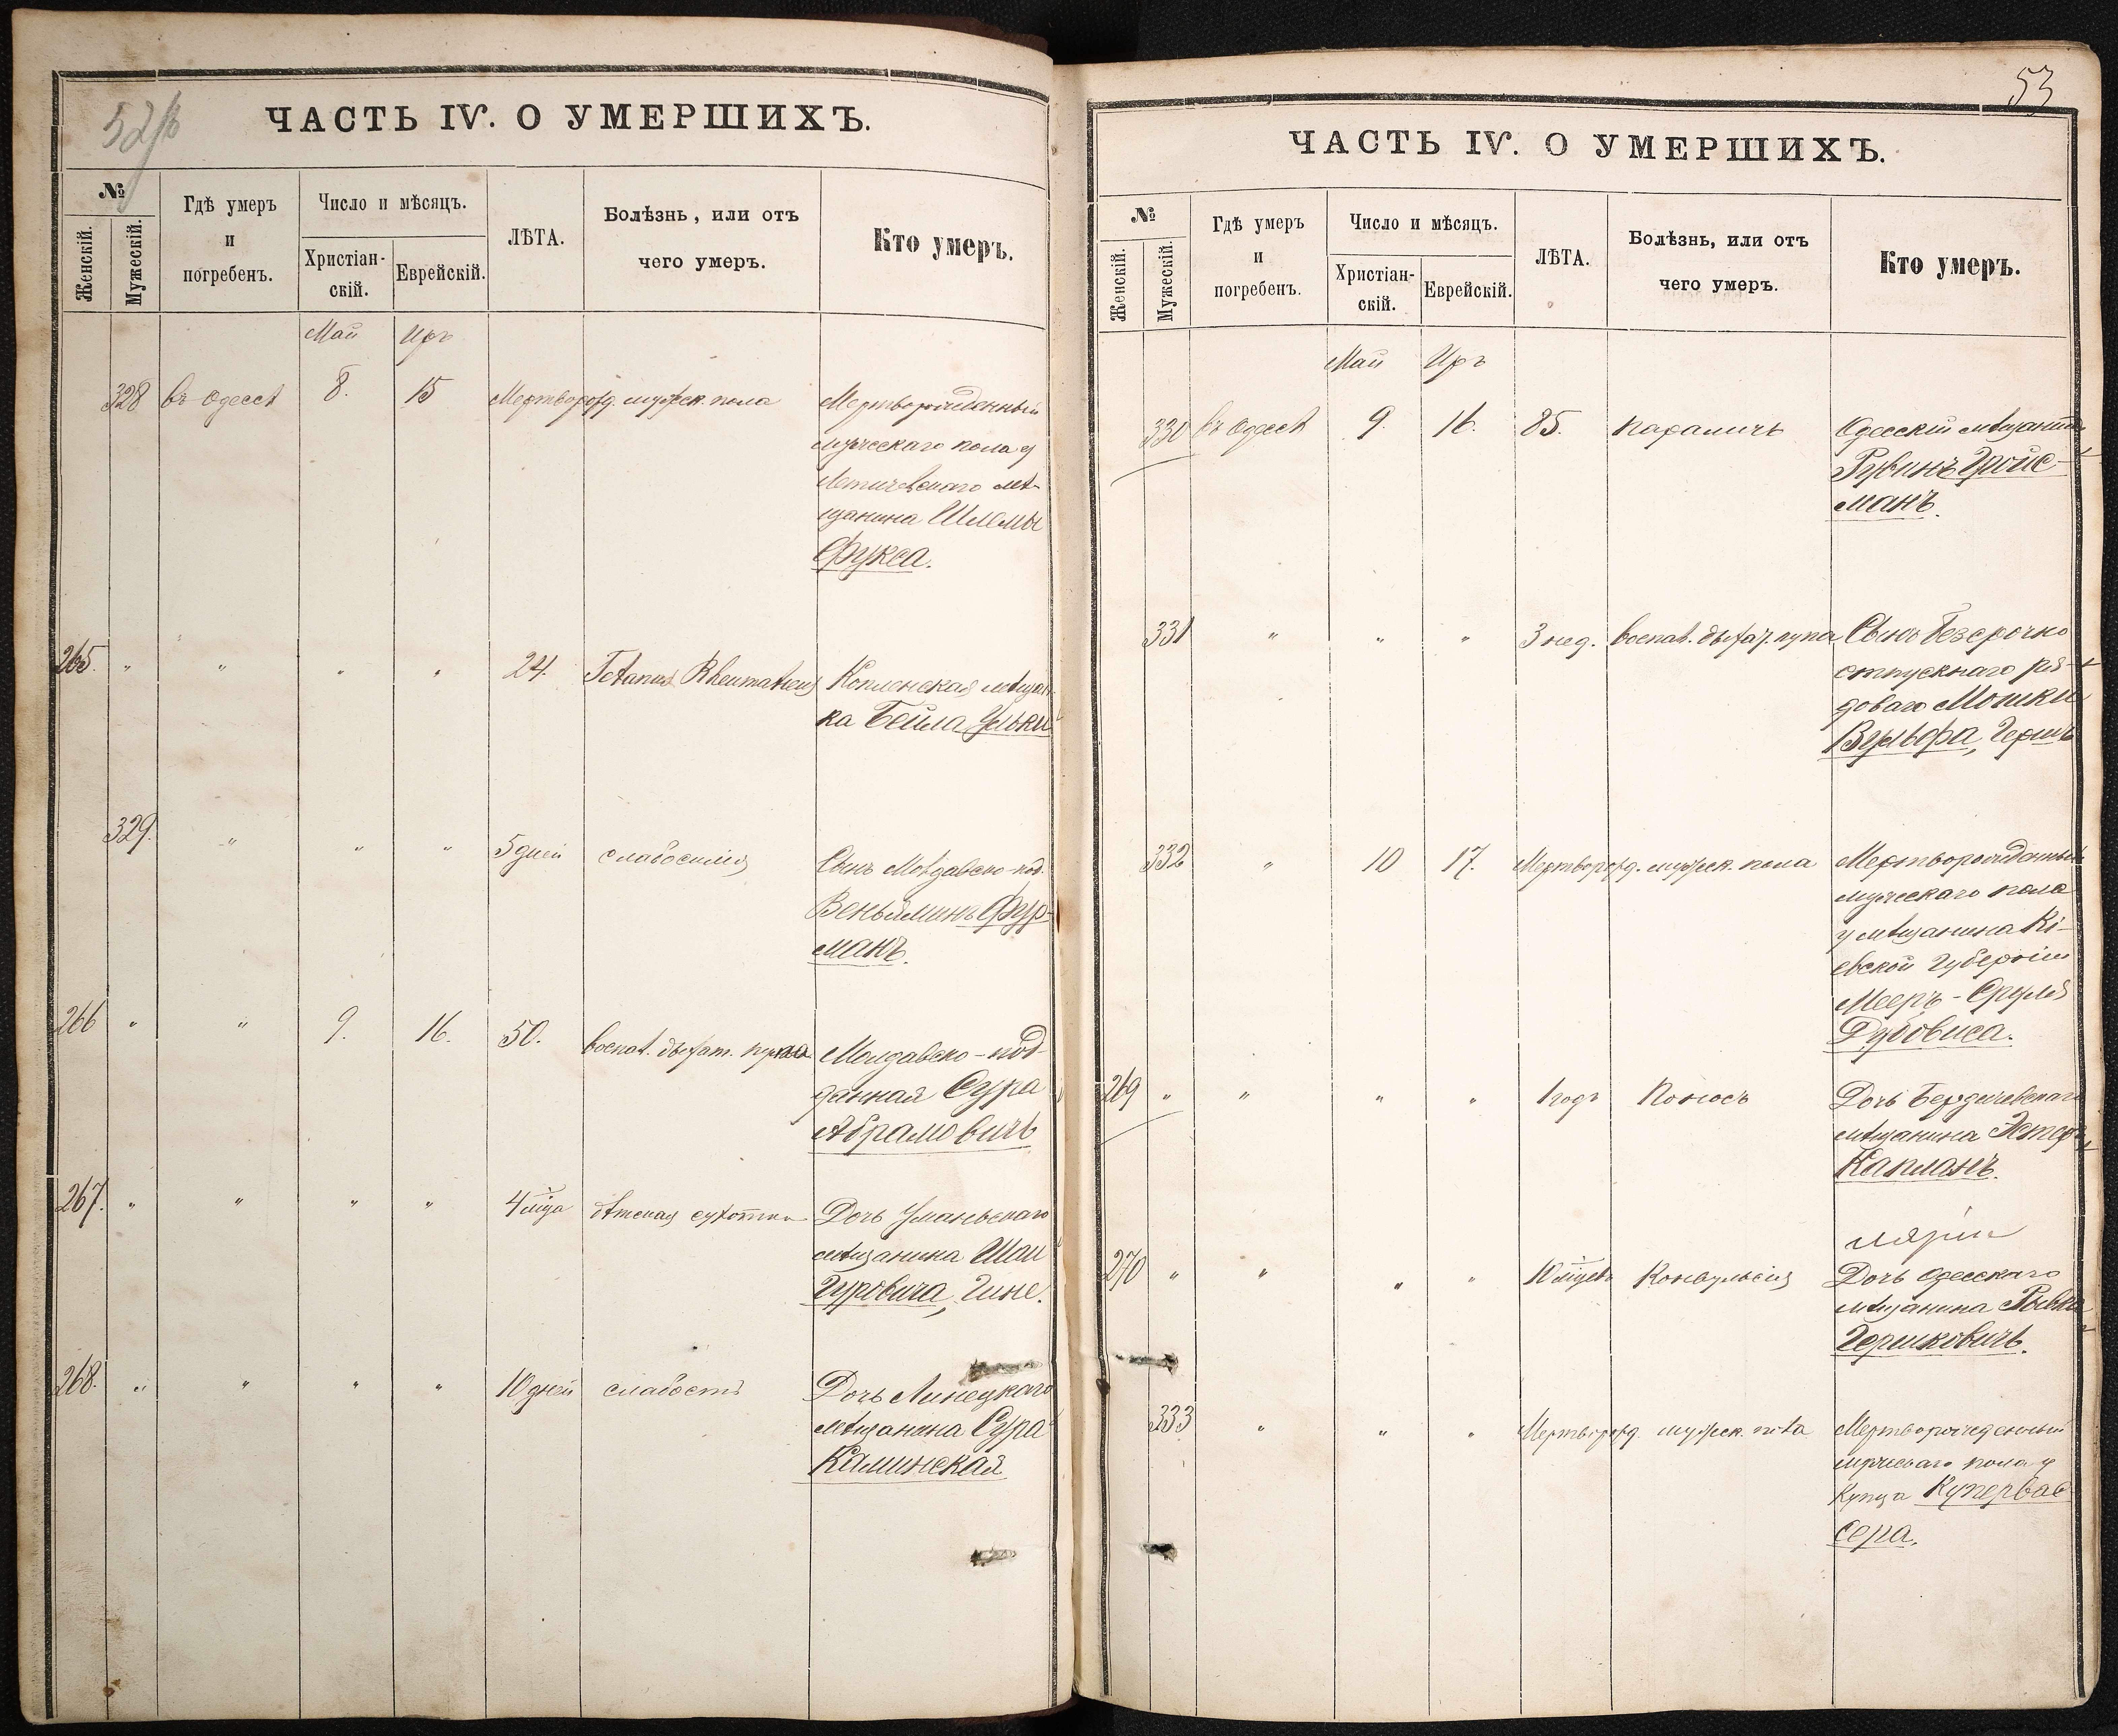 52 об
ЧАСТЬ IV. О УМЕРШИХЪ.
№
Женскій.
Мужескій.
Гдѣ умеръ
и
погребенъ.
Число и мѣсяцъ.
Христіан-
скій.
Еврейскій.
ЛѢТА.
Болѣзнь, или отъ
чего умеръ.
Кто умеръ.
Май Иръ
328 въ Одессѣ 8. 15 Мертворожд. мужеск. пола Мертворожденный
мужескаго пола у
Летичевскаго мѣ-
щанина Шлемы
Фукса.
265. " " " " 24. Tetanus Rheumaticus мѣщан-
ка Бейла
329. " " " 5 дней слабосилія Сынъ Молдавско-под.
Веньяминъ Фур-
манъ.
266 " " 9. 16. 50. воспал. дыхат. Молдавско-под-
данная Сура
Абрамовичъ
267. " " " " 4 м-ца дѣтская сухотка Дочь Уманьскаго
мѣщанина
Гуровича,
268. " " " " 10 дней слабость Дочь Липецкаго
мѣщанина Сура
Калинская
53
ЧАСТЬ IV. О УМЕРШИХЪ.
№
Женскій.
Мужескій.
Гдѣ умеръ
и
погребенъ.
Число и мѣсяцъ.
Христіан-
скій.
Еврейскій.
ЛѢТА.
Болѣзнь, или отъ
чего умеръ.
Кто умеръ.
Май Иръ
330 въ Одессѣ 9. 16. 85. параличъ Одесскій мѣщанинъ
Рувинъ Гройс-
манъ.
331 " " " 3 нед. воспал. дыхат. Сынъ безсрочно
отпускнаго ря-
доваго Мошки
Вульфа, Гершъ
332 " 10 17. Мертворожд. мужеск. пола Мертворожденный
мужескаго пола
у мѣщанина Кі-
евской губерніи
Мееръ-Сруля
Дубовиса.
269 " " " " 1 годъ Поносъ Дочь Бердичевскаго
мѣщанина Эстеръ
Капланъ.
270 " " " " 10 м-цевъ Конвульсія Дочь Одесскаго
мѣщанина Рывка
Гершковичъ.
333 " " " Мертворожд. мужеск. пола Мертворожденный
мужескаго пола у
Купца Купервас-
сера.